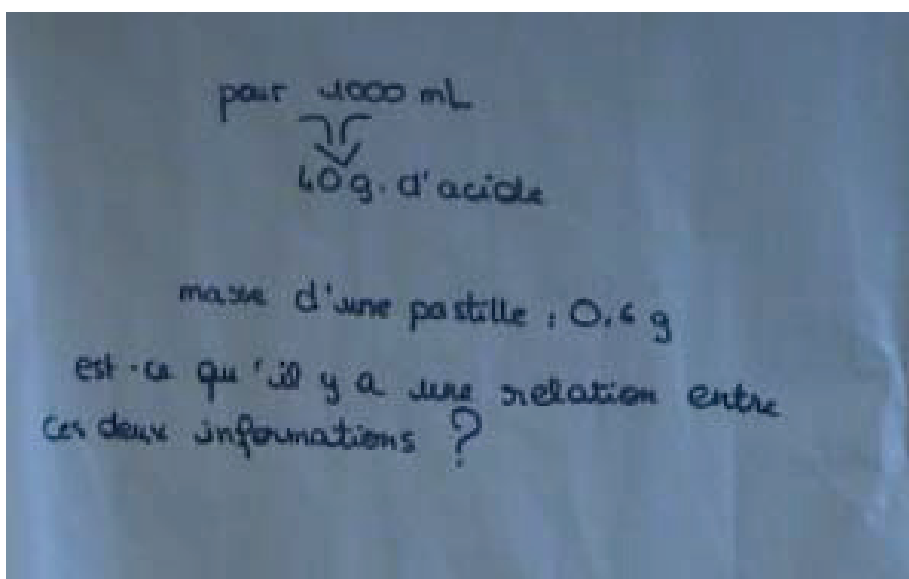 pour 1000 mL
40g. d'acide
masse d'une pastille : 0,6 g
est-ce qu'il y a une relation entre
ces deux informations ?